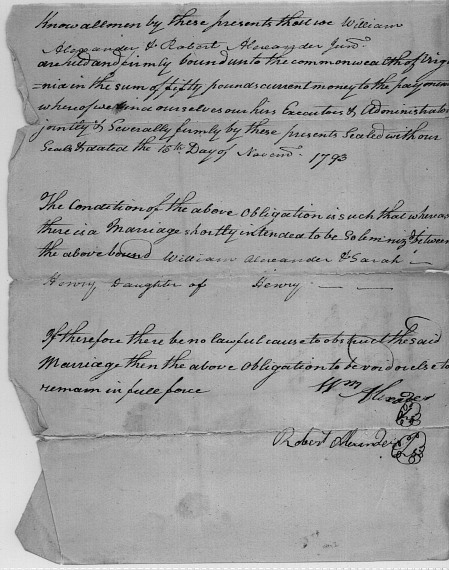 Know all men by these presents that we William
Alexander & Robert Alexander Junr.
are held and firmly bound unto the commonwealth of Virgi
=nia in the sum of fifty pounds current money to the payment
whereof we bind ourselves our hirs Executors & Administrators
jointly & Severally firmly by these presents Sealed with our
Seals & dated the 16th Day of Novemr. 1793
The Condition of the above Obligation is such that whereas
there is a Marriage shortly intended to be Solemnizd between
the above bound William Alexander & Sarah
Henry Daughter of Henry
If therefore there be no lawful cause to obstruct the Said
Marriage then the above Obligation to be void or else to
remain in full force
Wm Alexader
Robert Alexander